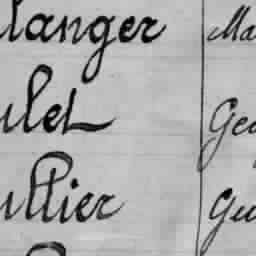 langer Ma
ulet Geo
ullier Gu